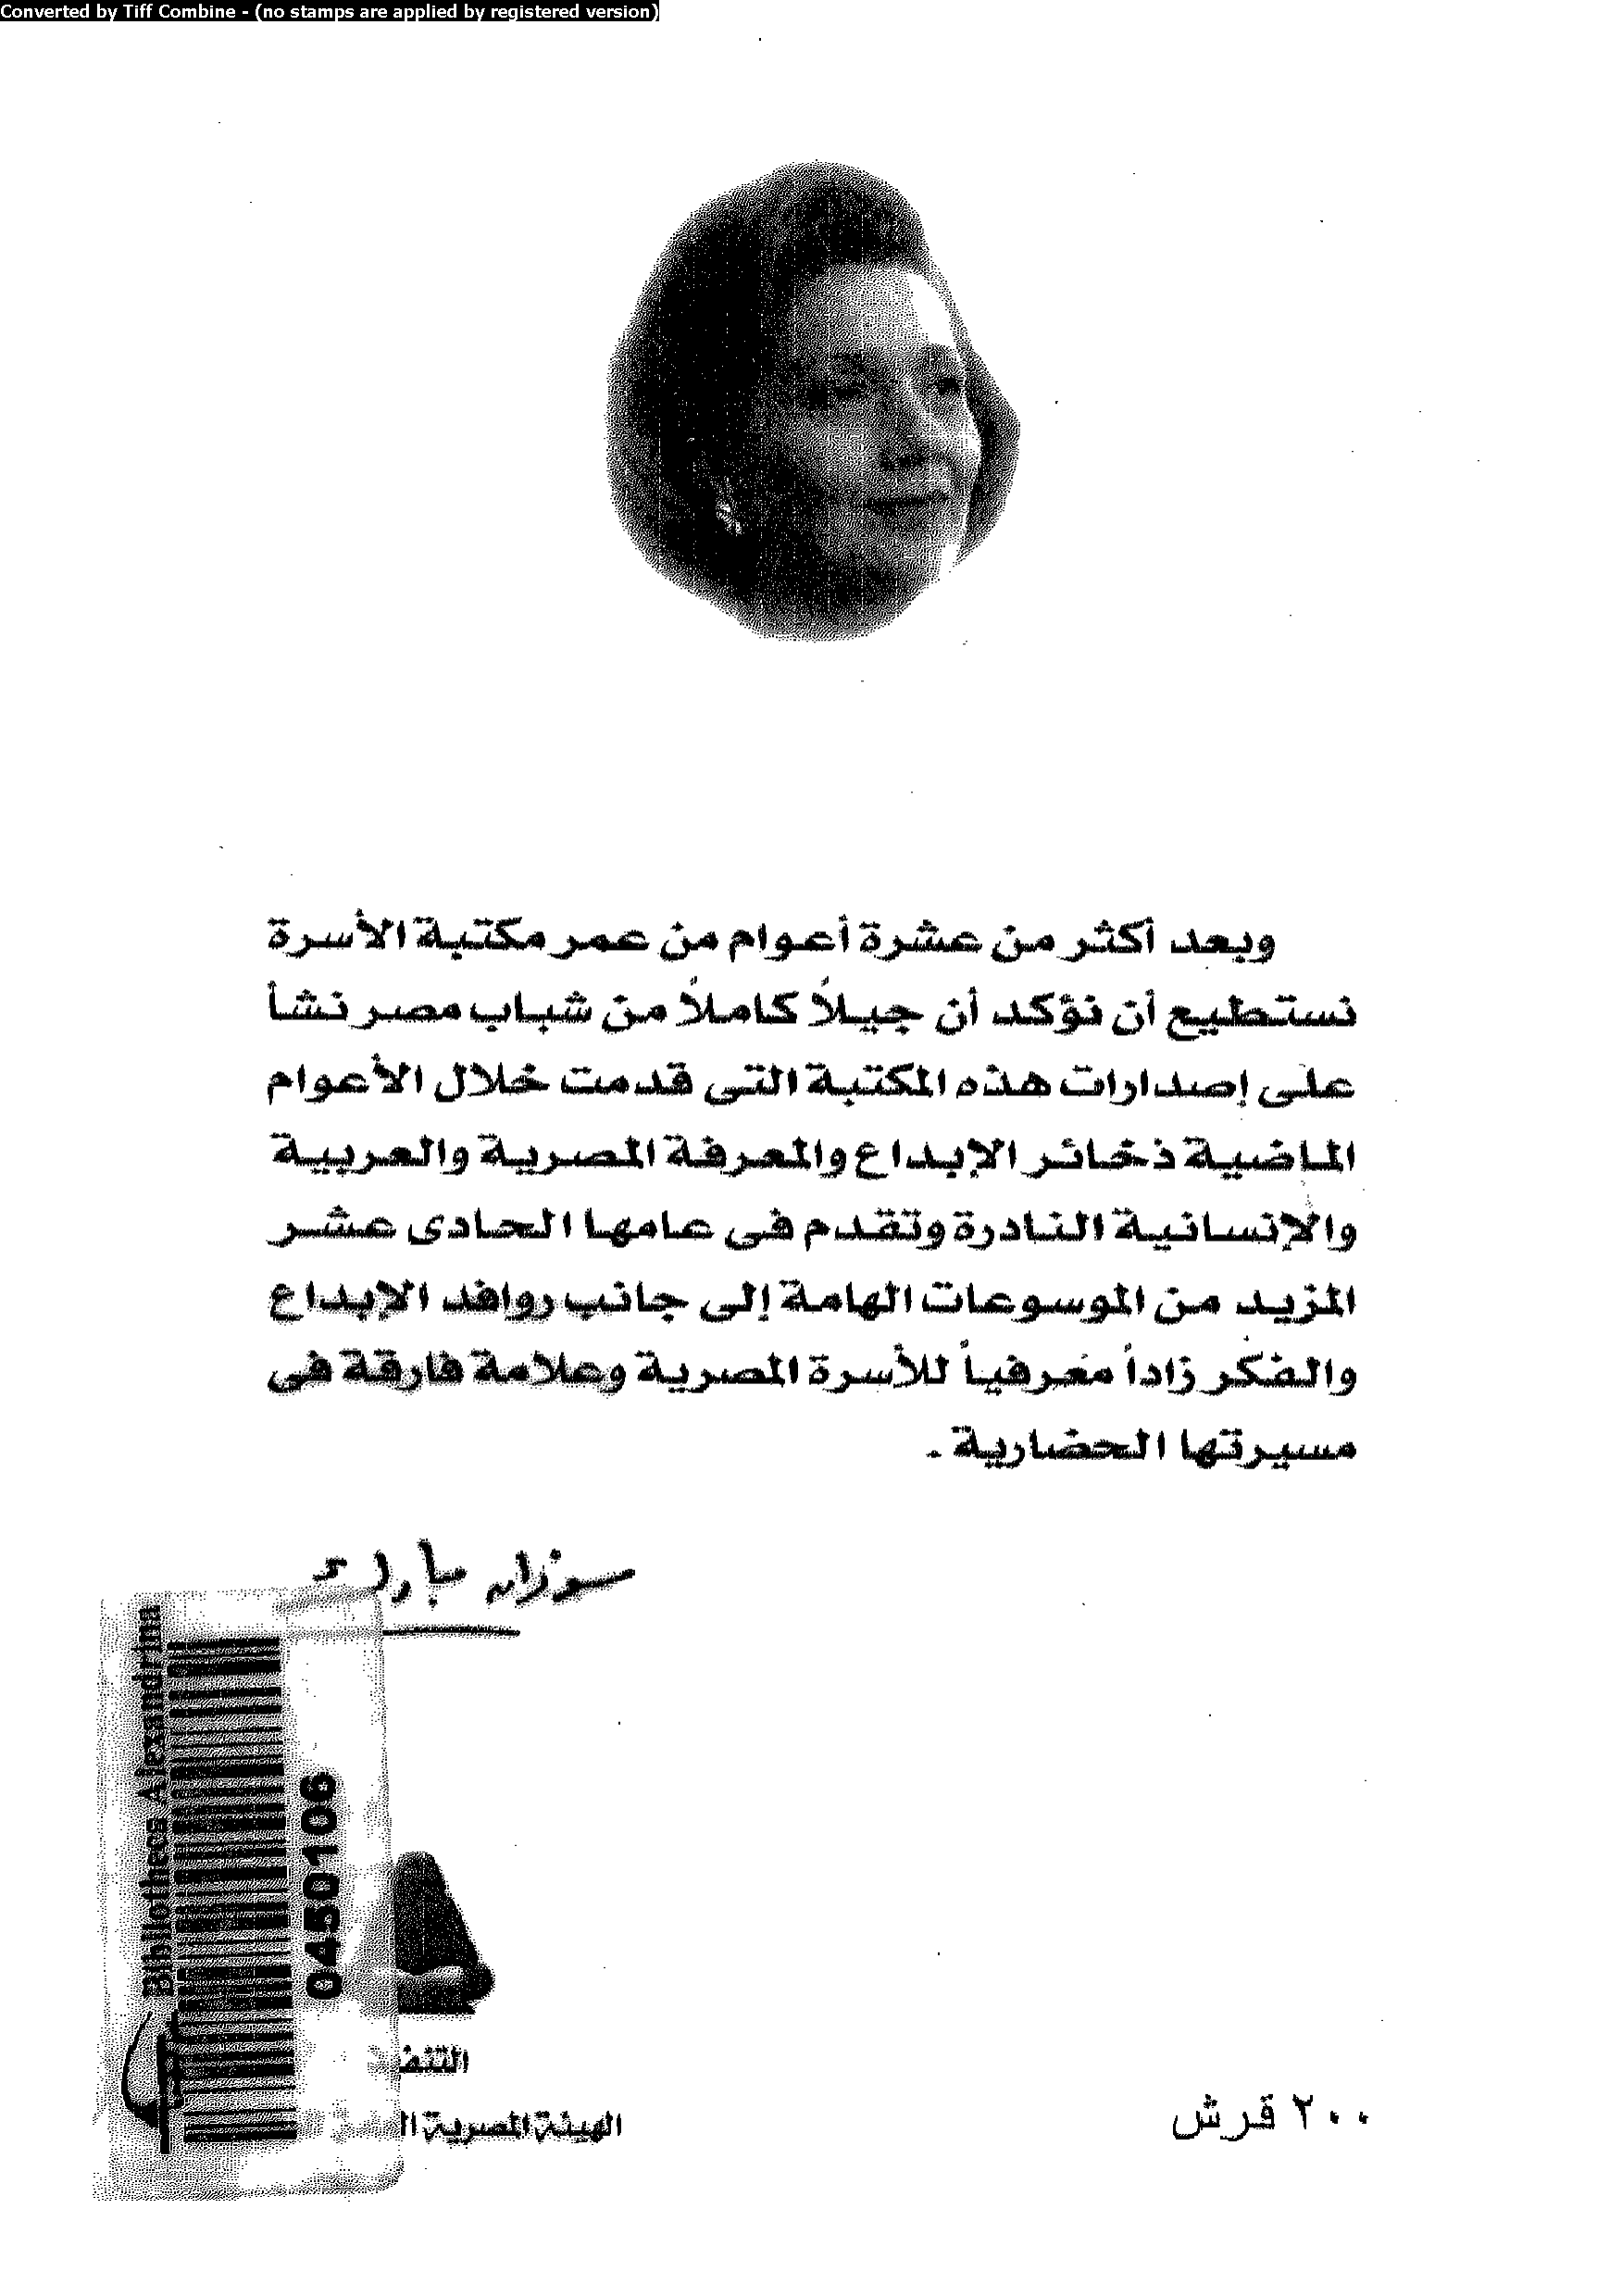 Converted by Tiff Combine - (no stamps are applied by registered version)
وبعد أكثر من عشرة أعوام من عمر مكتبة الأسرة
نستطيع أن نؤكد أن جيلاً كاملاً من شباب مصر نشأ
على إصدارات هذه المكتبة التى قدمت خلال الأعوام
الماضية ذخائر الإبداع والمعرفة المصرية والعربية
والإنسانية النادرة وتقدم فى عامها الحادى عشر
المزيد من الموسوعات الهامة إلى جانب روافد الإبداع
والفكر زاداً معرفياً للأسرة المصرية وعلامة فارقة فى
مسيرتها الحضارية .
سوزان مبارك
Bibliotheca Alexandrina
0450106
٢٠٠ قرش
الهيئة المصرية